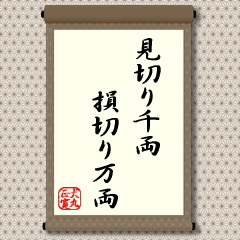 見切り千両
損切り万両